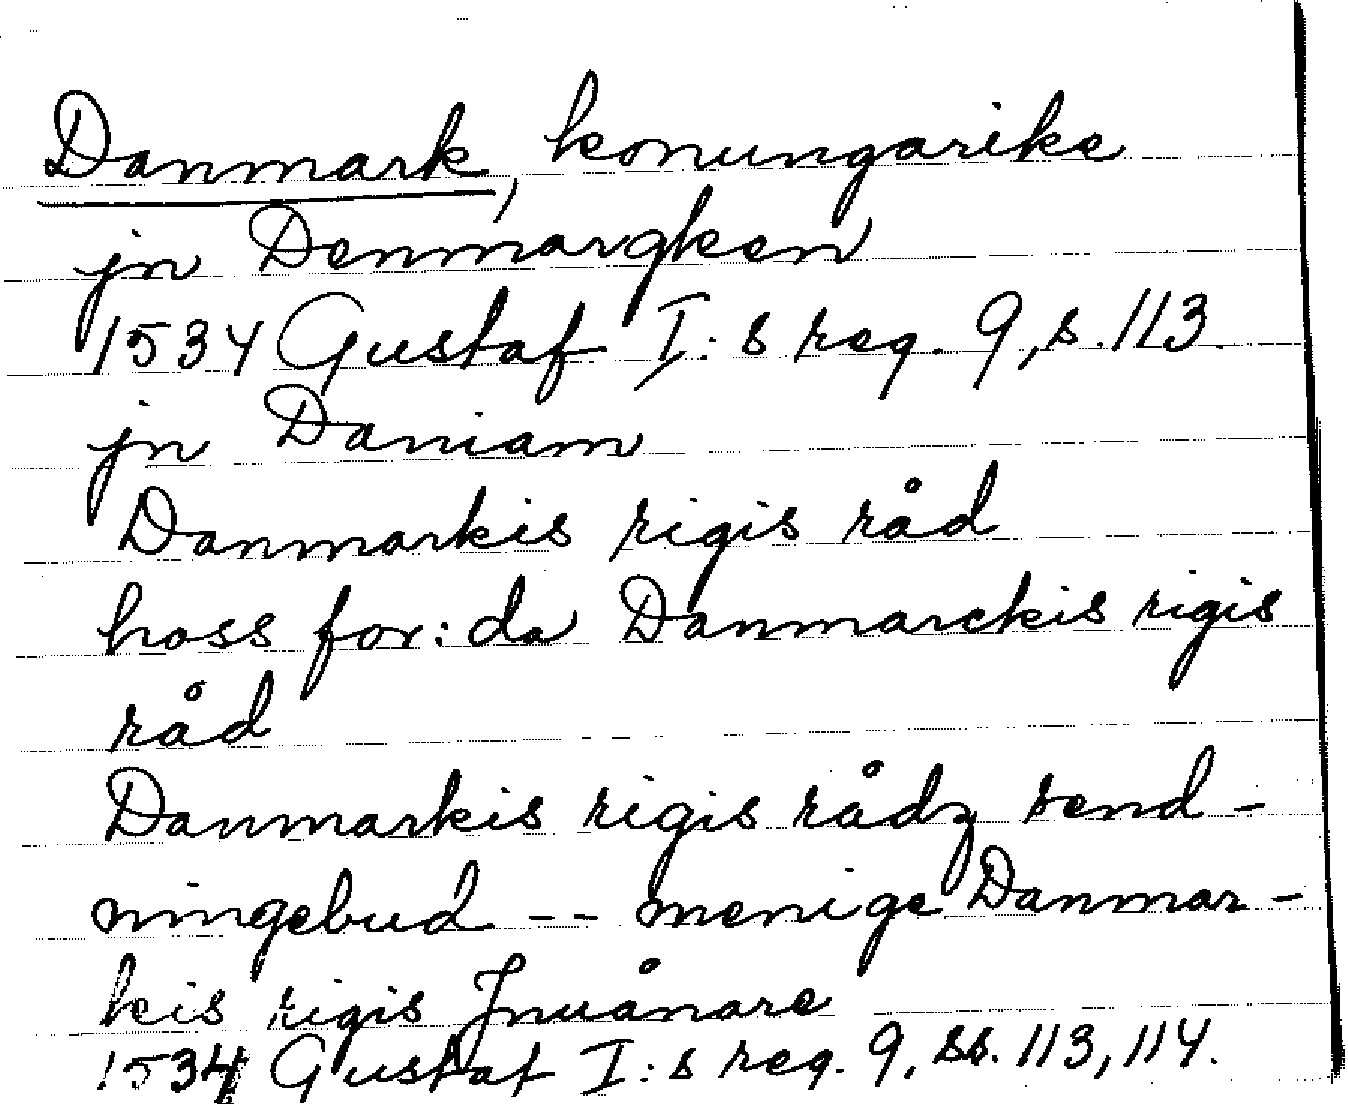 Danmark, konungarike
jn Denmargken
1534 Gustaf I:s reg. 9, s. 113.
jn Daniam
Danmarkis rigis råd
hoss for:da Danmarckis rigis
råd
Danmarkis rigis rådz send-
ningebud -- menige Danmar-
kis rigis Jnuånare
1534 Gustaf I:s reg. 9, ss. 113, 114.